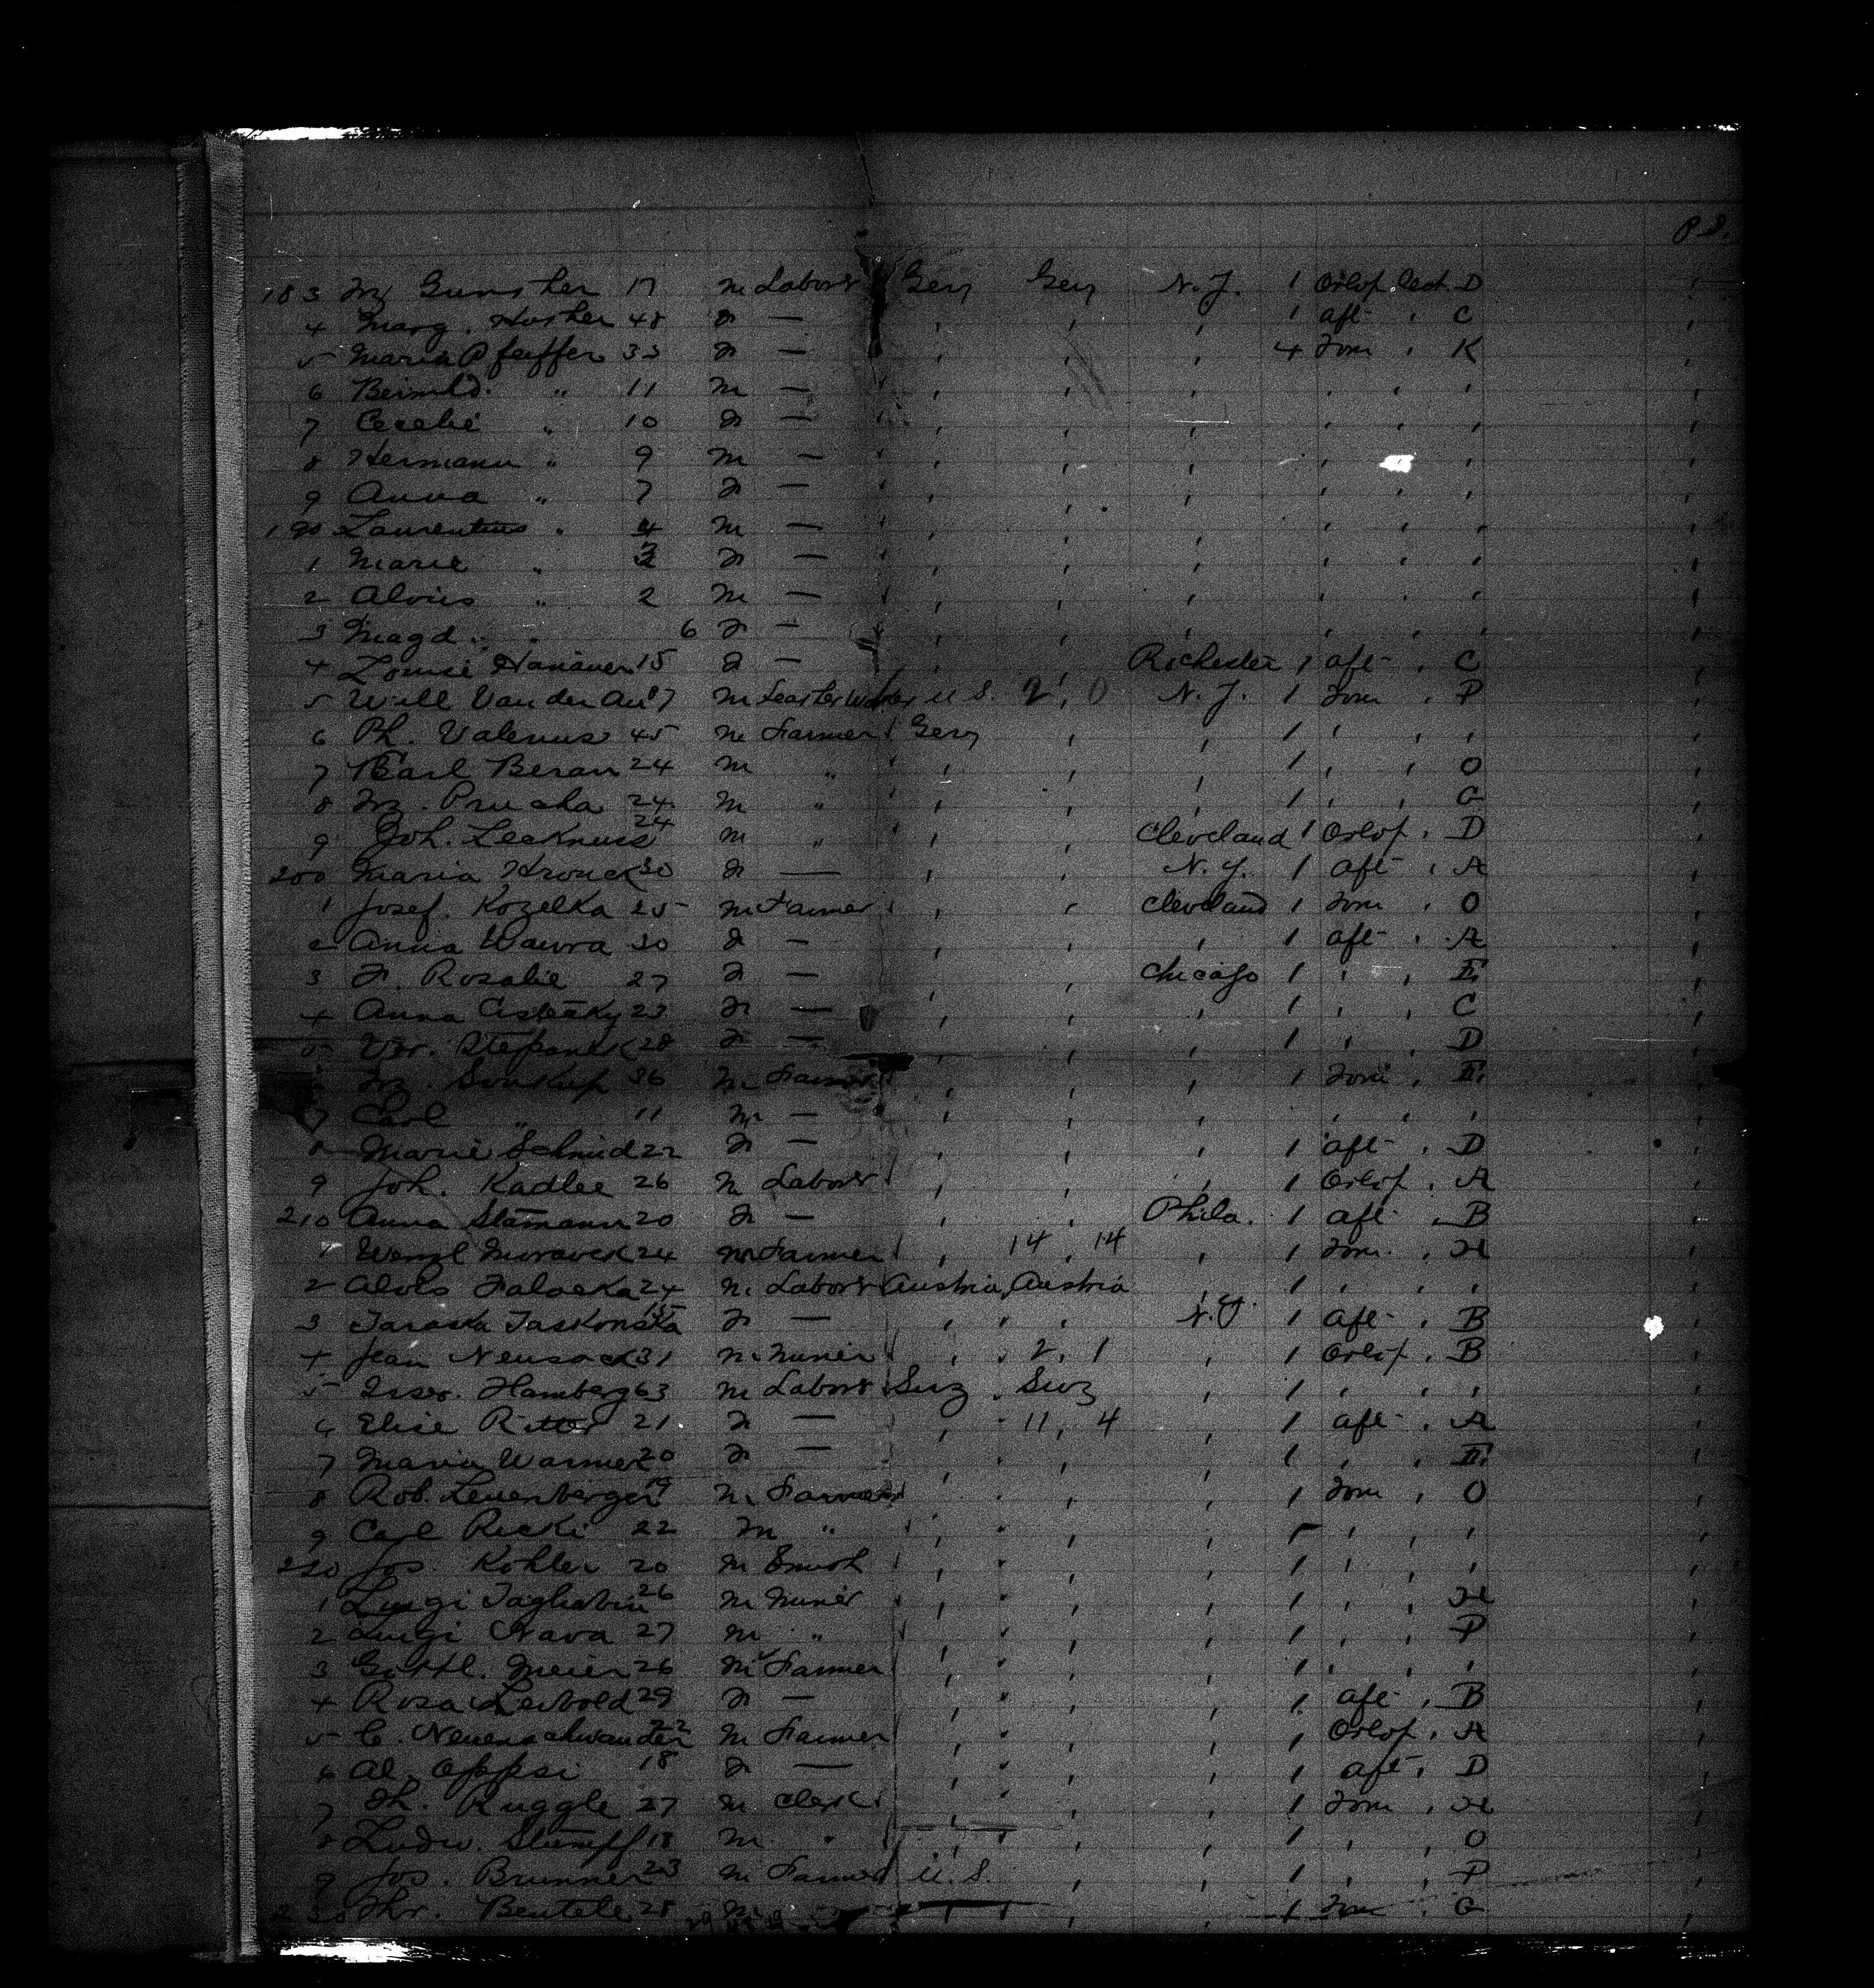 P. S.
183 Fz Gunther 17 m Labour Gery Gery N.Y. 1 Orlop Sect. D
4 Marg. 48 F — , , , 1 aft , C
5 Maria Pfeiffer 35 F — , , , 4 Forw , K
6 " 11 m — , , , , , ,
7 Cecelie " 10 F — , , , , , ,
8 Hermann " 9 m — , , , , , ,
9 Anna " 7 F — , , , , , ,
190 Laurentius " 4 m — , , , , , ,
1 Marie " F — , , , , , ,
2 Alois " 2 m — , , , , , ,
3 Magd. " 6 F — , , , , , ,
4 Louise Hanauer 15 F — , , Rochester 1 aft , C
5 Will Van der m U.S. 2, 0 N.Y. 1 Forw , P
6 Ph. Valerius 45 m Farmer Gery , , 1 , , ,
7 Carl Beran 24 m " , , , 1 , , O
8 Fz. Prucha 24 m " , , , 1 , , G
9 Joh. 24 m " , , Cleveland 1 Orlop , D
200 Maria 30 F — , , N.Y. 1 aft , A
1 Josef. Kozelka 25 m Farmer , , Cleveland 1 Forw , O
2 Anna Wawra 30 F — , , , 1 aft , A
3 F. Rosalie 27 F — , , Chicago 1 , , E
4 Anna 23 F — , , , 1 , , C
5 Ver. Stepanek 28 F — , , , 1 , , D
Fz. Soukup 36 m Farmer , , , 1 Forw , E
7 Carl " 11 m — , , , , , ,
8 Marie Schmid 22 F — , , , 1 aft , D
9 Joh. Kadlec 26 m Labour , , , 1 Orlop , A
210 Anna Stamann 20 F — , , Phila. 1 aft , B
1 Wenzl 24 m Farmer , 14, 14 , 1 Forw , H
2 Alois 24 m Labour Austria, Austria , 1 , , ,
3 15 F — , , N.Y. 1 Aft , B
4 Jean 31 m Miner , 2, 1 , 1 Orlop , B
5 Hamberg 63 m Labour Swz Swz , 1 , , ,
6 Elise Ritter 21 F — , 11, 4 , 1 aft , A
7 Maria 20 F — , , , 1 , , E
8 Rob. Leuenberger 19 m Farmer , , , 1 Forw , O
9 Carl 22 m " , , , 1 , , ,
220 Jos. Kohler 20 m Smith , , , 1 , , ,
1 Luigi 26 m Miner , , , 1 , , H
2 Luigi Nava 27 m " , , , 1 , , P
3 Gottl. Meier 26 m Farmer , , , 1 , , ,
4 Rosa Leibold 29 F — , , , 1 aft , B
5 C. Neuenschwander 22 m Farmer , , , 1 Orlop , A
6 Al. 18 F — , , , 1 aft , D
7 Th. Ruggle 27 m Clerk , , , 1 Forw , H
8 Ludw. Stumpf 18 m " , , , 1 , , O
9 Jos. Brunner 23 m Farmer U.S. , , 1 , , P
230 Chr. Beutele 28 m , , 1 Forw , G